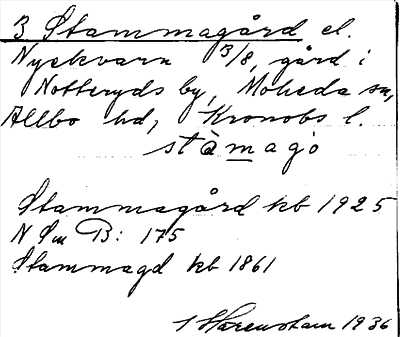 3 Stammagård el.
Nyekvarn 3/8, gård i
Notteryds by, Moheda sn,
Allbo hd, Kronobs l.
stàmagọ
Stammagård kb 1925
N Sm B: 175
Stammagd kb 1861
1936